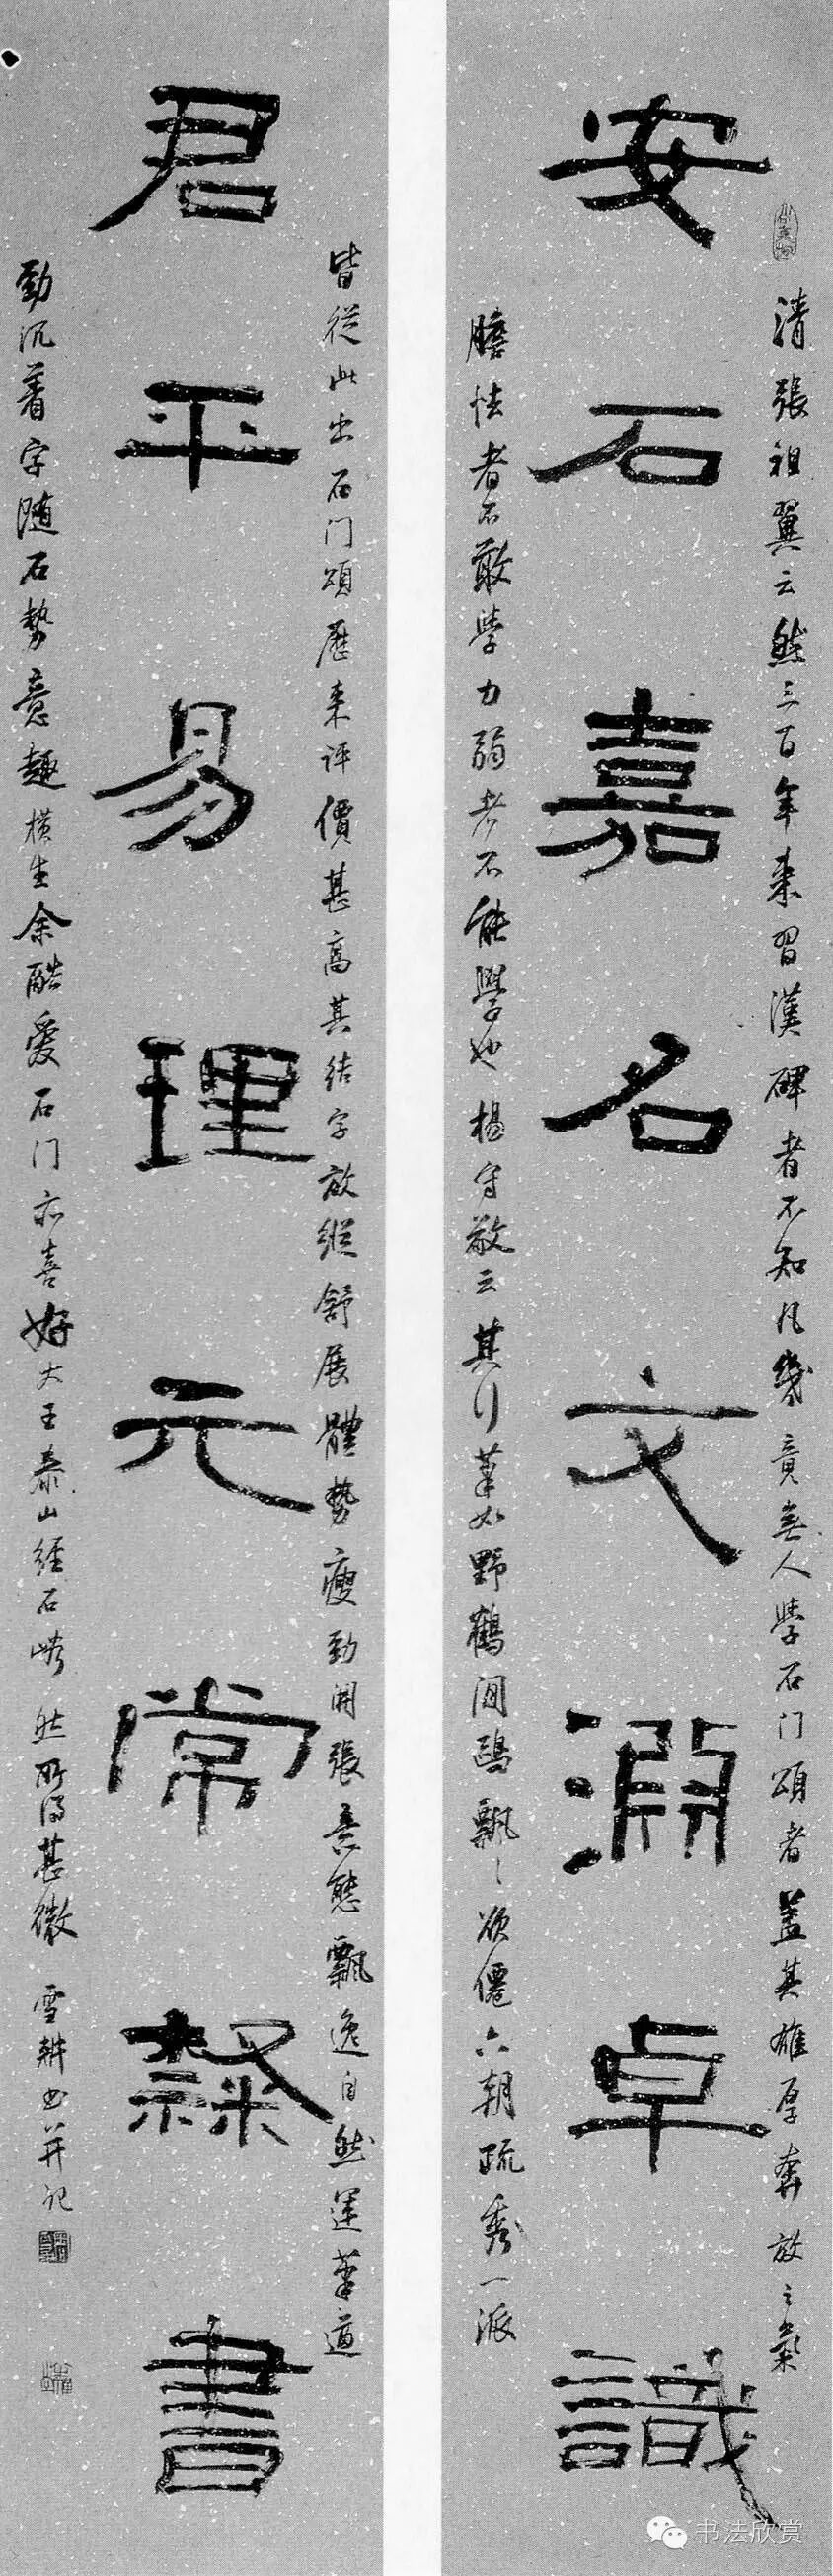 安石嘉名文淵卓識
清張祖翼云然三百年来習漢碑者不知凡幾竟無人學石门頌者盖其雄厚奔放之氣
膽怯者不敢學力弱者不能學也楊守敬云其行筆如野鶴閒鷗飄飄欲僊六朝疏秀一派
君平易理元常隸書
皆從此出石门頌歷来评價甚高其结字放纵舒展體勢瘦勁開張意態飘逸自然運筆遒
勁沉着字随石勢意趣橫生余酷爱石门亦喜好大王泰山經石峪然所得甚微
雪耕书并记
书法欣赏